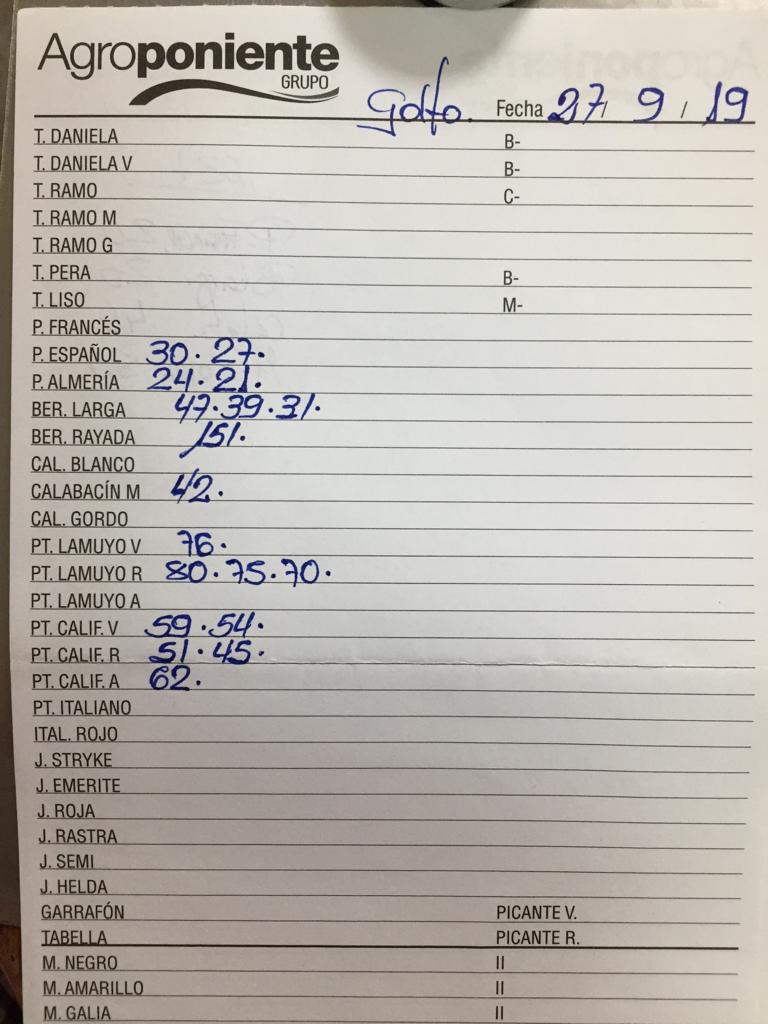 Agroponiente
GRUPO
Golfo. Fecha 27 / 9 / 19
T. DANIELA B-
T. DANIELA V B-
T. RAMO C-
T. RAMO M
T. RAMO G
T. PERA B-
T. LISO M-
P. FRANCÉS
P. ESPAÑOL 30. 27.
P. ALMERÍA 24. 21.
BER. LARGA 47. 39. 31.
BER. RAYADA 151.
CAL. BLANCO
CALABACÍN M 42.
CAL. GORDO
PT. LAMUYO V 76.
PT. LAMUYO R 80. 75. 70.
PT. LAMUYO A
PT. CALIF. V 59. 54.
PT. CALIF. R 51. 45.
PT. CALIF. A 62.
PT. ITALIANO
ITAL. ROJO
J. STRYKE
J. EMERITE
J. ROJA
J. RASTRA
J. SEMI
J. HELDA
GARRAFÓN PICANTE V.
TABELLA PICANTE R.
M. NEGRO II
M. AMARILLO II
M. GALIA II